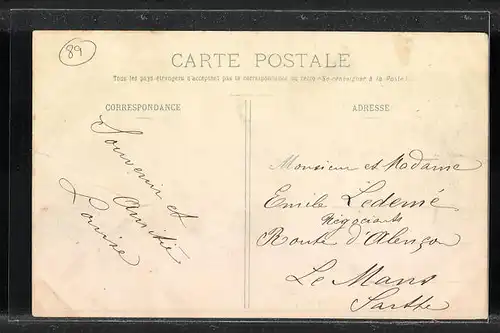 89
CARTE POSTALE
Tous les pays étrangers n'acceptent pas la correspondance au recto (Se renseigner à la Poste)
CORRESPONDANCE
ADRESSE
Souvenir et
Amitié
Louise
Monsieur et Madame
Emile Ledemé
Négociants
Route d'Alençon
Le Mans
Sarthe